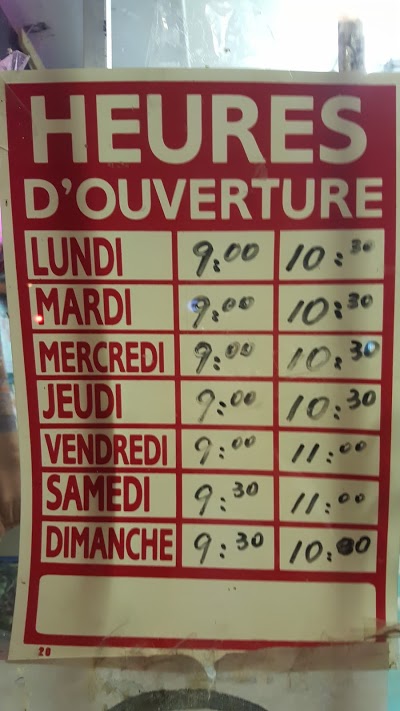 HEURES
D'OUVERTURE
LUNDI 9:00 10:30
MARDI 9:00 10:30
MERCREDI 9:00 10:30
JEUDI 9:00 10:30
VENDREDI 9:00 11:00
SAMEDI 9:30 11:00
DIMANCHE 9:30 10:00
20